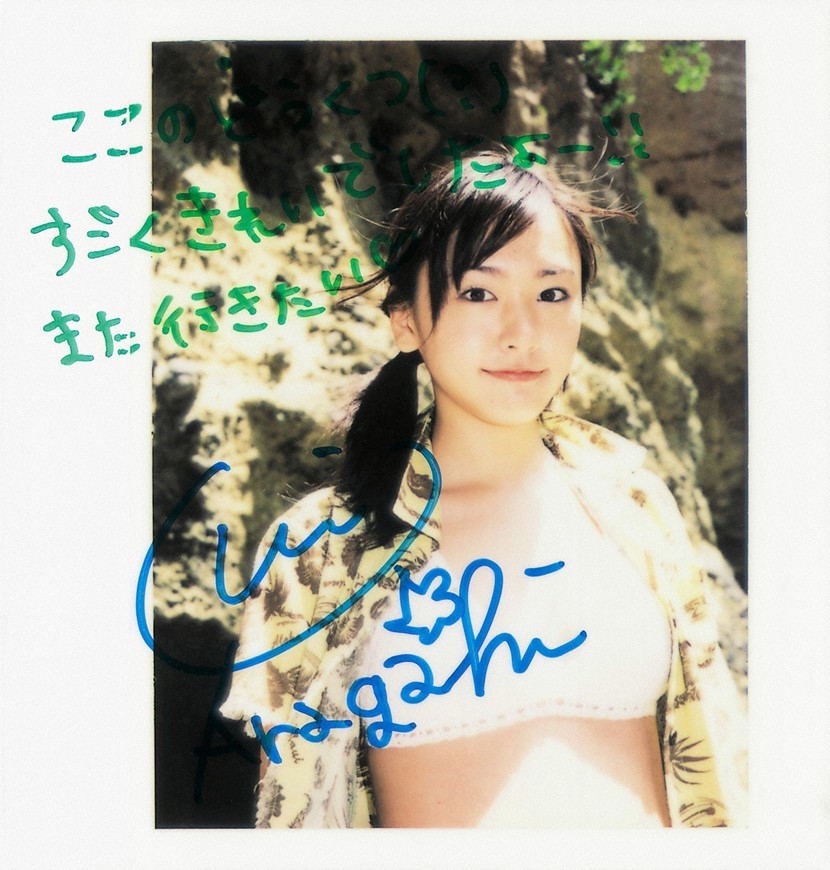 ここのどうくつ(?)
すごくきれいでしたよー!!
また行きたい♡
Yui
Aragaki